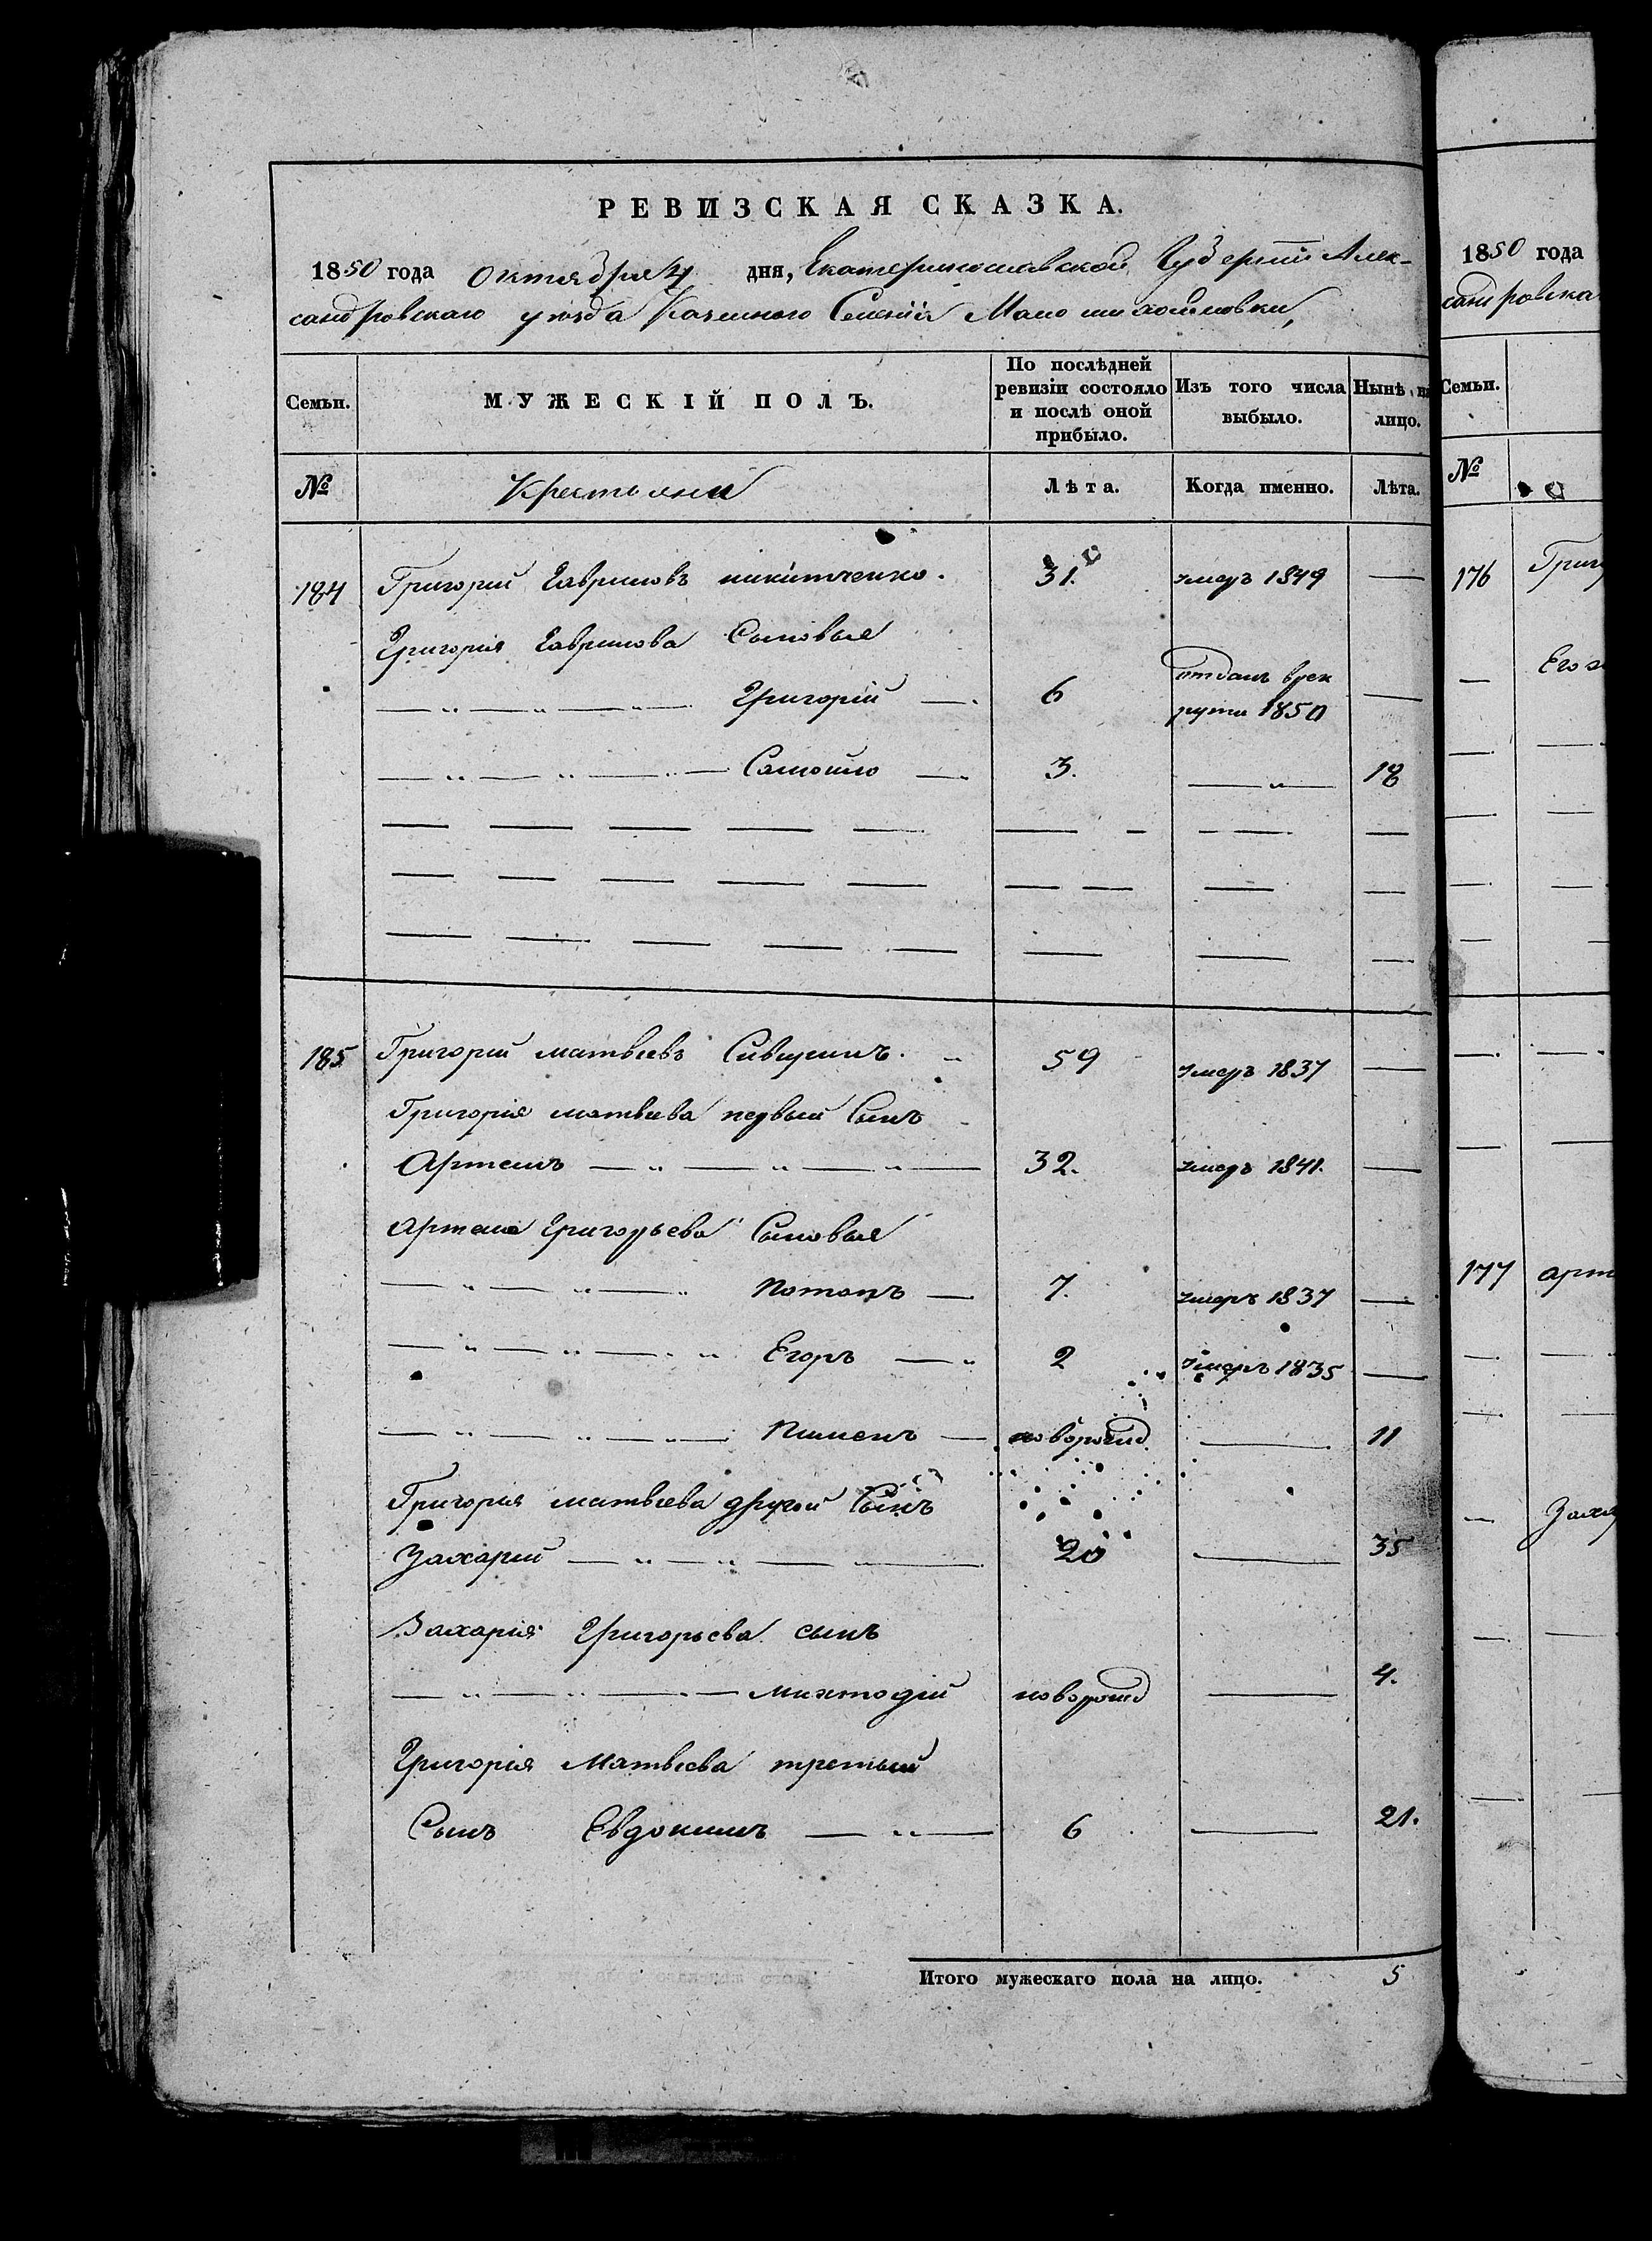 РЕВИЗСКАЯ СКАЗКА.
1850 года Октября дня, Екатеринославской Губернии Алек-
сандровскаго уѣзда Казенного Селенія Мало михайловки,
Семьи. МУЖЕСКІЙ ПОЛЪ. По послѣдней ревизіи состояло и послѣ оной прибыло. Изъ того числа выбыло. Нынѣ на лицо.
№ Крестьяне Лѣта. Когда именно. Лѣта.
184 Григорий Гавриловъ никитченко. 31. умеръ 1849 —
Григорія Гаврилова Сыновья
Григорій — 6 отданъ врек
руты 1850 —
Самойло — 3. — 18
185 Григорий матвѣевъ 59 умеръ 1837 —
Григорія матвѣева первый Сынъ
Артемъ 32. умеръ 1841. —
Артема Григорьева Сыновья
Потапъ — 7. умеръ 1837 —
Егоръ — 2 умеръ 1835 —
Пименъ — новорожд — 11
Григорія матвѣева другой Сынъ
Захарий 20 — 35
Захарія Григорьева сынъ
новорожд — 4.
Григорія Матвѣева третьий
Сынъ Евдокимъ — 6 — 21.
Итого мужескаго пола на лицо. 5
1850 года
сандровска
Семьи.
№
176 Григ
Его
177 арт
Заха